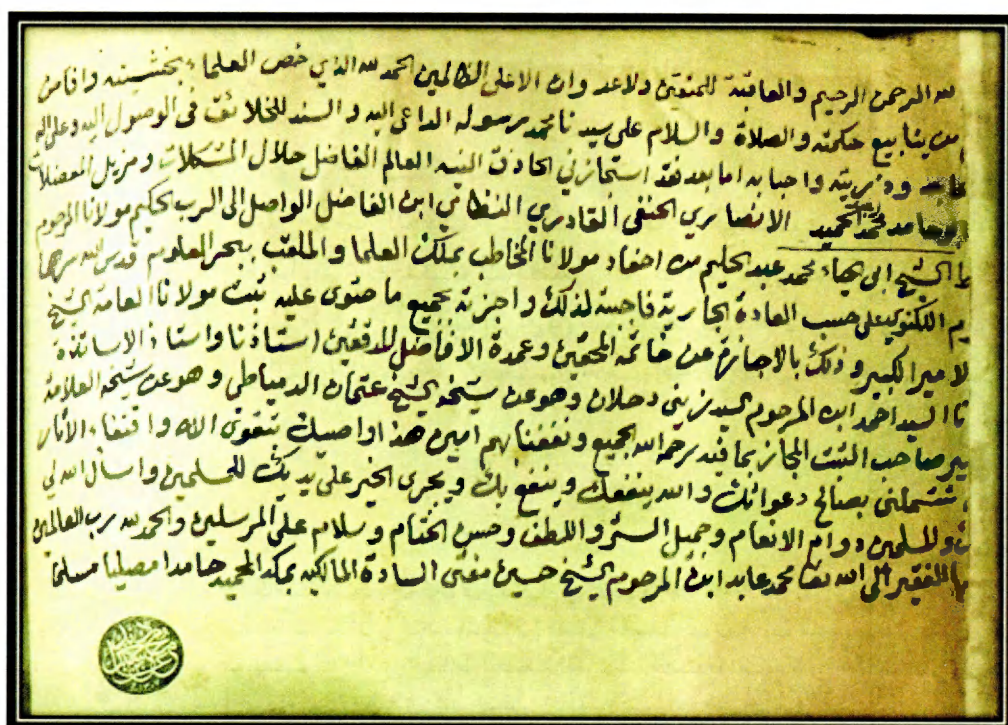 لله الرحمن الرحيم والعاقبة للمتقين ولا عدوان الا على الظالمين الحمد لله الذي خص العلماء بخشيته وافاض
من ينابيع حكمته والصلاة والسلام على سيدنا محمد رسوله الداعي اليه والسند للخلائق في الوصول اليه وعلى اله
وذريته واحبابه اما بعد فقد استجازني الحاذق النبيه العالم الفاضل حلال المشكلات ومزيل المعضلات
محمد عبد الحميد الانصاري الحنفي القادري النظامي ابن الفاضل الواصل الى الرب الحكيم مولانا المرحوم
الشيخ ابي الحياء محمد عبد الحليم من احفاد مولانا المخاطب بملك العلما والملقب ببحر العلوم قدس الله سرهما
اللكنوي على حسب العادة الجارية فاجبته لذلك واجزته بجميع ما حتوى عليه ثبت مولانا العامة الشيخ
الامير الكبير وذلك بالاجازة عن خاتمة المحققين وعمدة الافاضل المدققين استاذنا واستاذ الاساتذة
نا السيد احمد ابن المرحوم السيد زيني دحلان وهو عن شيخه الشيخ عثمان الدمياطي وهو عن شيخه العلامة
صاحب الثبت المجاز بما فيه رحم الله الجميع ونفعنا بهم امين هذا اوصيك بتقوى الاله واقتفاء الأثار
تشملني بصالح دعواتك والله ينفعك وينفع بك ويجرى الخير على يديك للمسلمين واسأل الله لي
وللمسلمين دوام الانعام وجميل الستر واللطف وحسن الختام وسلام على المرسلين والحمد لله رب العالمين
الفقير الى الله تعا محمد عابد ابن المرحوم الشيخ حسين مفتى السادة المالكيه بمكة المحميه حامدا مصليا مسلما